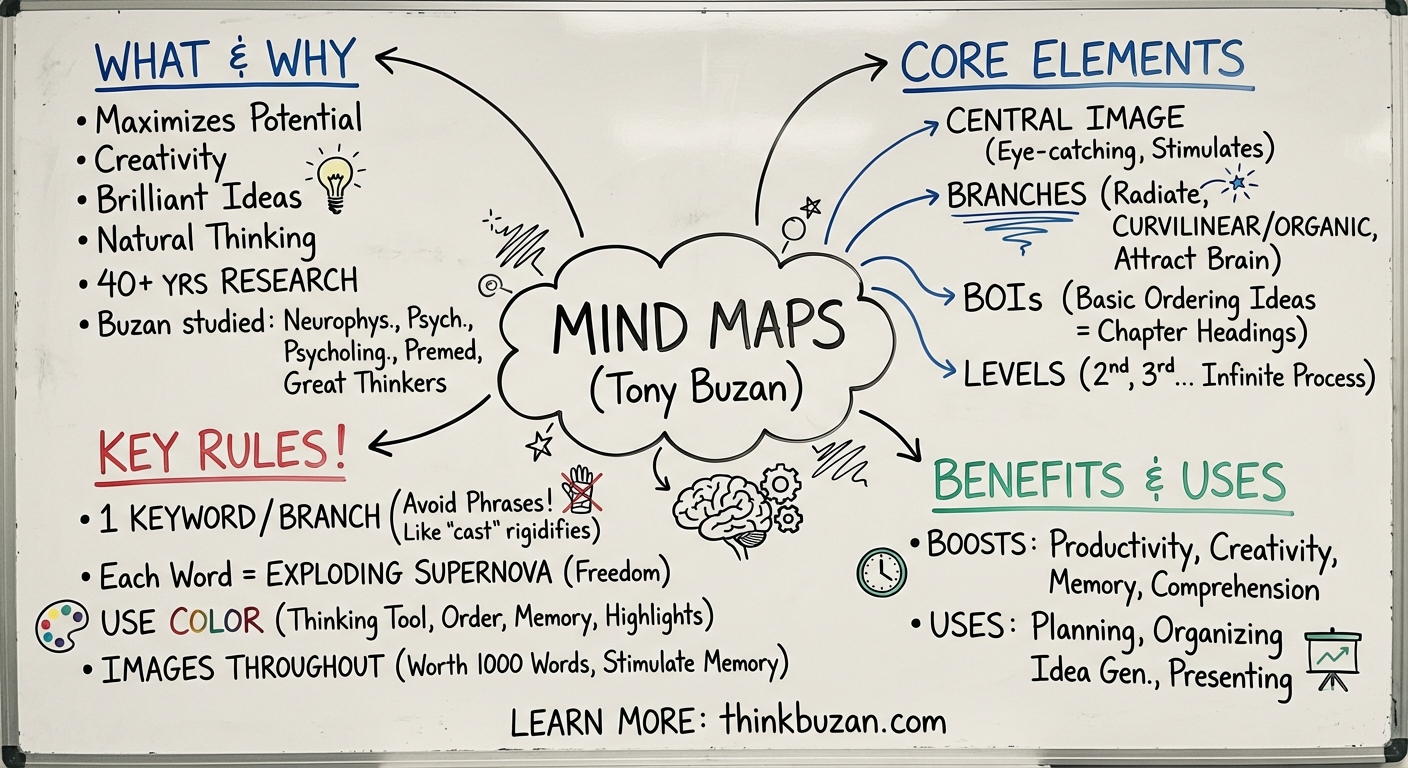 WHAT & WHY
• Maximizes Potential
• Creativity
• Brilliant Ideas
• Natural Thinking
• 40+ YRS RESEARCH
• Buzan studied: Neurophys., Psych.,
Psycholing., Premed,
Great Thinkers
CORE ELEMENTS
CENTRAL IMAGE
(Eye-catching, Stimulates)
BRANCHES (Radiate,
CURVILINEAR/ORGANIC,
Attract Brain)
BOIs (Basic Ordering Ideas
= Chapter Headings)
LEVELS (2nd, 3rd... Infinite Process)
MIND MAPS
(Tony Buzan)
KEY RULES!
• 1 KEYWORD/BRANCH (Avoid Phrases!
Like "cast" rigidifies)
• Each Word = EXPLODING SUPERNOVA (Freedom)
USE COLOR (Thinking Tool, Order, Memory, Highlights)
• IMAGES THROUGHOUT (Worth 1000 Words, Stimulate Memory)
BENEFITS & USES
• BOOSTS: Productivity, Creativity,
Memory, Comprehension
• USES: Planning, Organizing
Idea Gen., Presenting
LEARN MORE: thinkbuzan.com